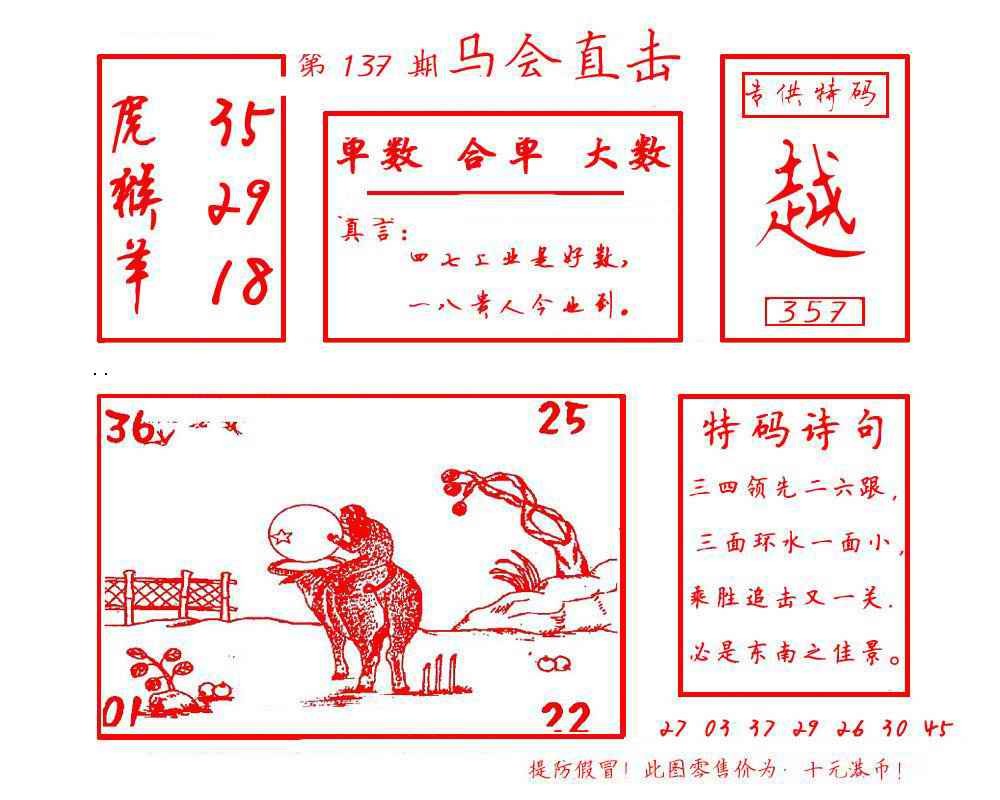 第137期马会直击
虎 35
猴 29
羊 18
单数 合单 大数
真言:
四七工业是好数,
一八贵人今业到。
专供特码
越
357
36
25
01
22
特码诗句
三四领先二六跟,
三面环水一面小,
乘胜追击又一关.
必是东南之佳景。
27 03 37 29 26 30 45
提防假冒!此图零售价为·十元港币!